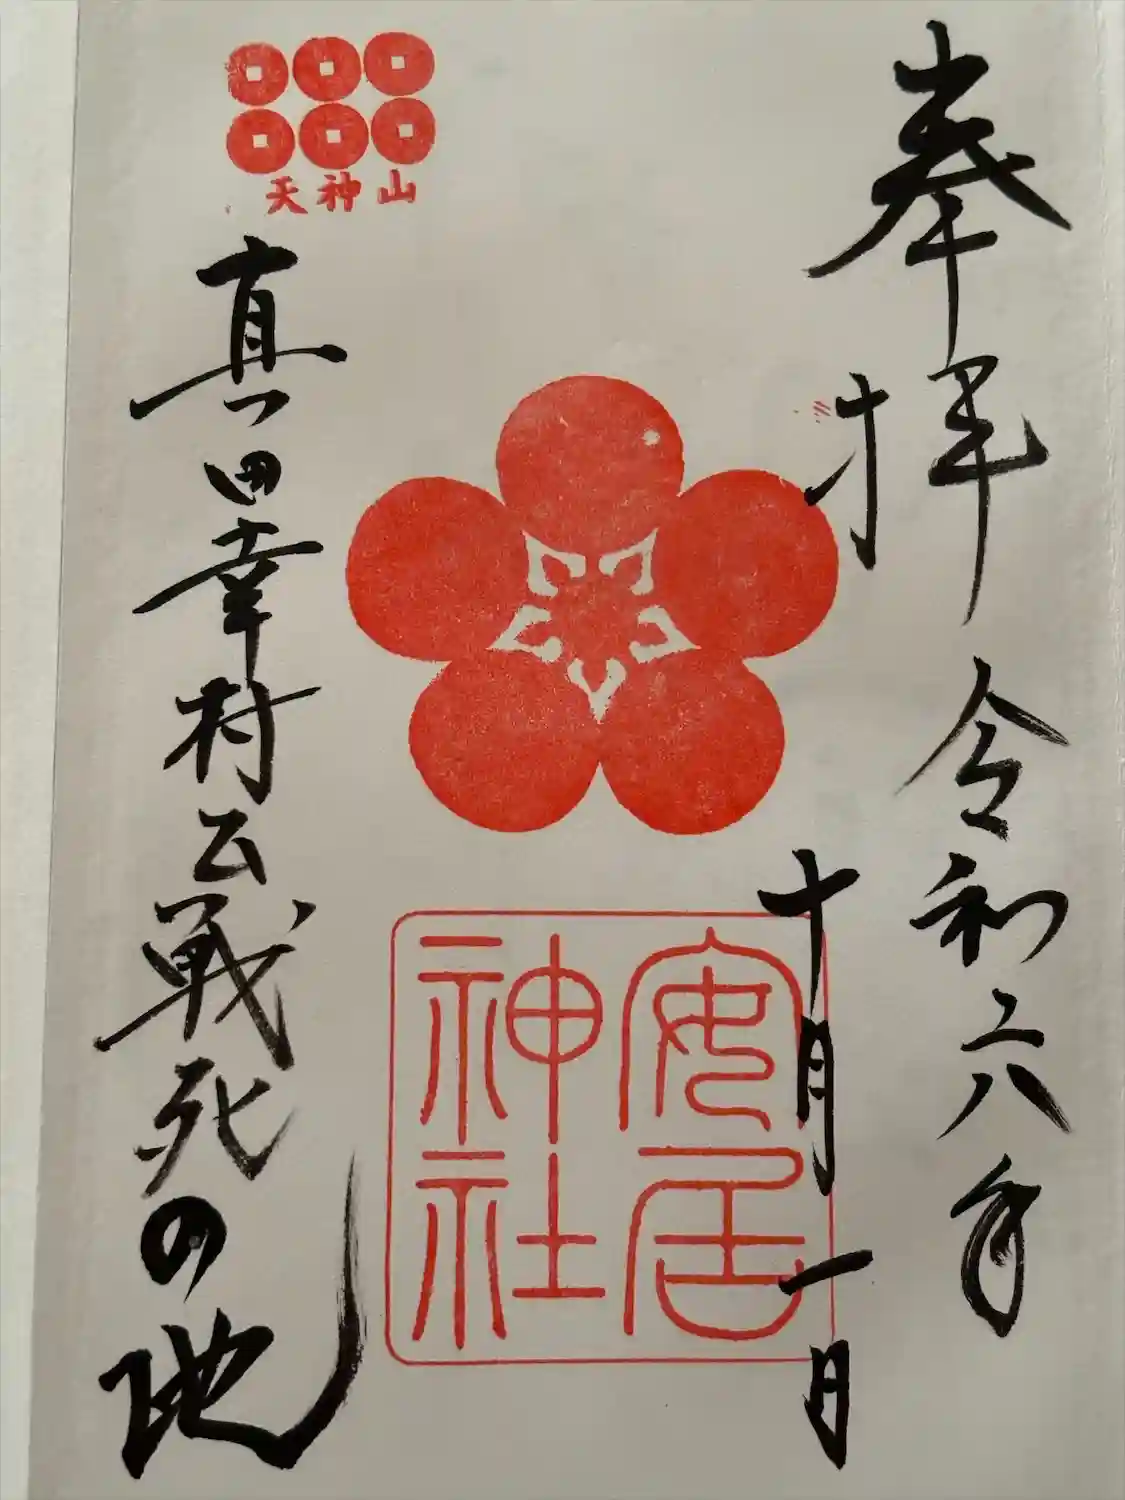 奉拝
令和六年
十月一日
安居
神社
天神山
真田幸村公戦死の地